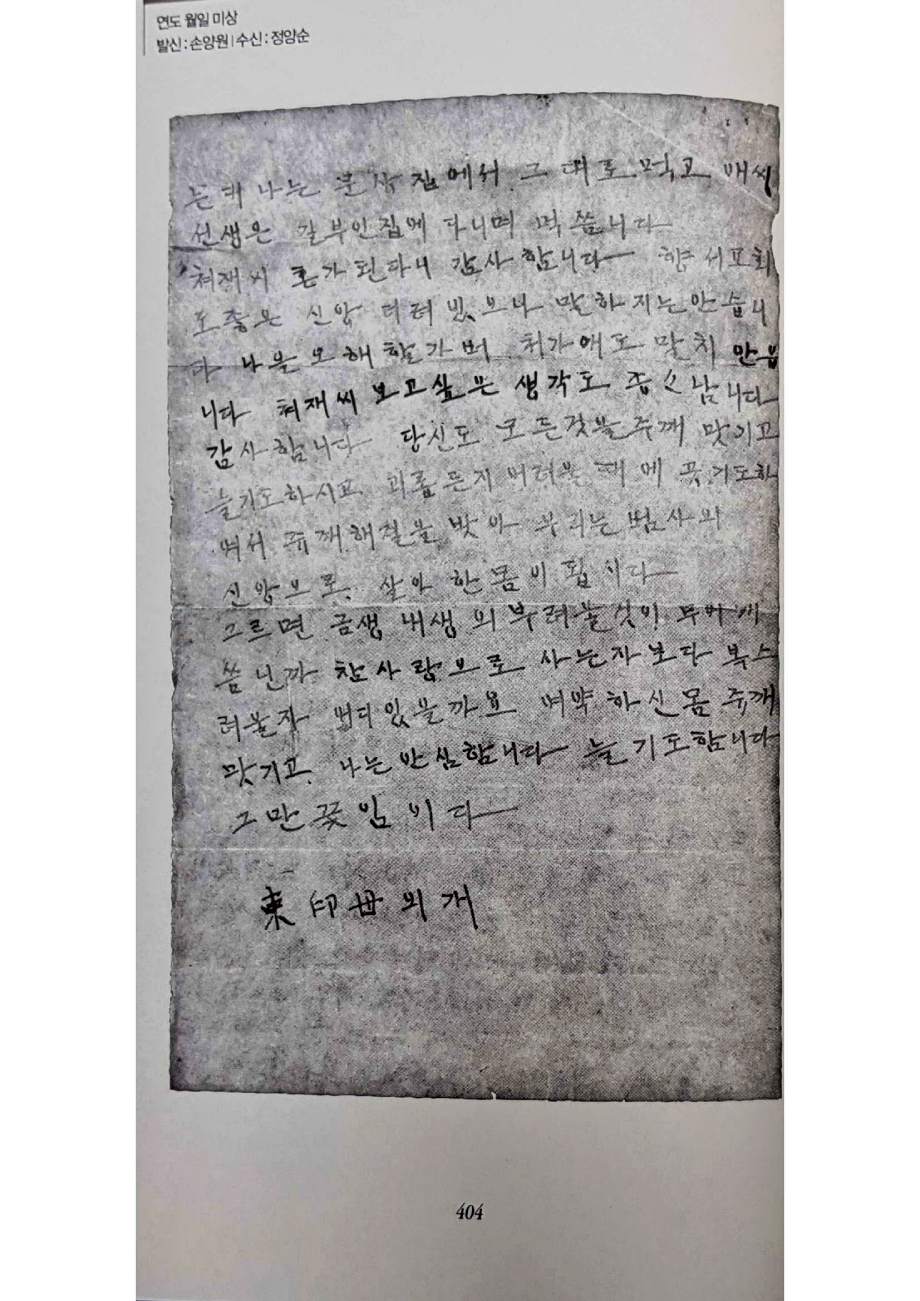 연도 월일 미상
발신 : 손양원 | 수신 : 정양순
는대 나는 집에서 그대로 먹고 배씨
선생은 갈부인집에 다니며 먹씀니다
처재씨 혼가된다니 감사함니다 향서교회
도 좋은 신앙 되려 말하지는 안습니
다 나을 오해할가버 처가애도 맞치 안읍
니다 처재씨 보고싶은 생각도 종々남니다
감사함니다 당신도 모든것을 쥬깨 맞기고
늘기도하시고 괴롭든지 어려울 때에 꼭 기도하
여서 쥬깨 해결을 밧아 우리는 범사의
신앙으로 살아 한몸이 됩시다
그르면 금생 내생의 부러울것이 무어에
씀닌까 참사랑으로 사는자보다 복스
러울자 어디있을까요 여약하신몸 쥬깨
맛기고 나는 안심함니다 늘 기도함니다
그만 꽃임이다
東印母의개
404